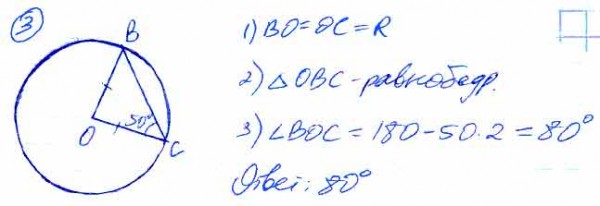 3
B
1) BO = OC = R
2) △OBC - равнобедр.
50°
O
C
3) ∠BOC = 180 - 50·2 = 80°
Ответ: 80°